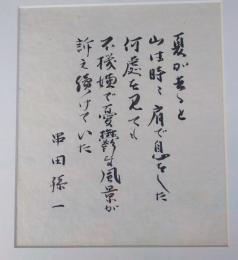 夏が去ると
山は時々肩で息をした
何處を見ても
不機嫌で憂鬱な風景が
訴え続けていた
串田孫一